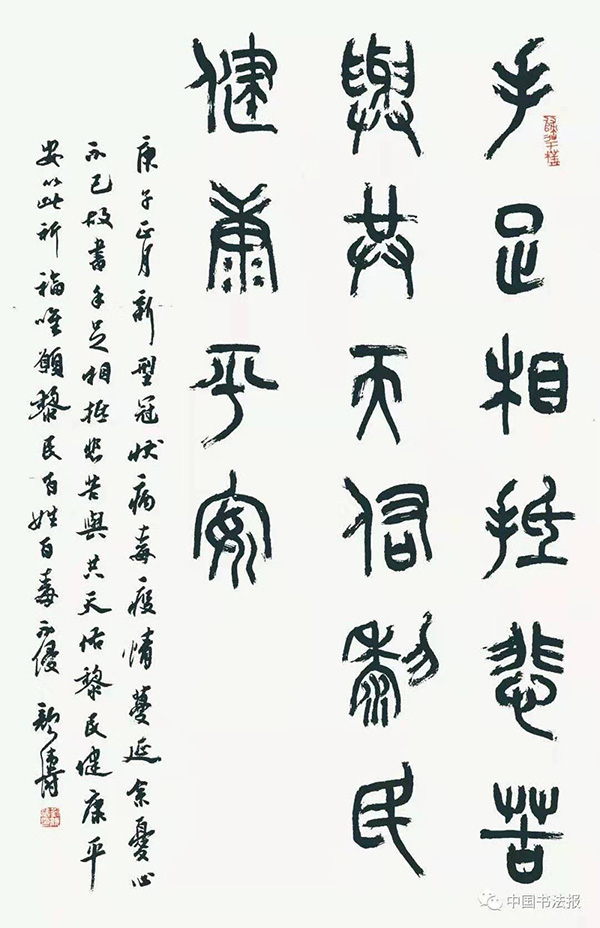 手足相抵悲苦
與共天佑黎民
健康平安
庚子正月新型冠狀病毒疫情蔓延余憂心
不已故書手足相抵悲苦與共天佑黎民健康平
安以此祈福唯願黎民百姓百毒不侵
中国书法报